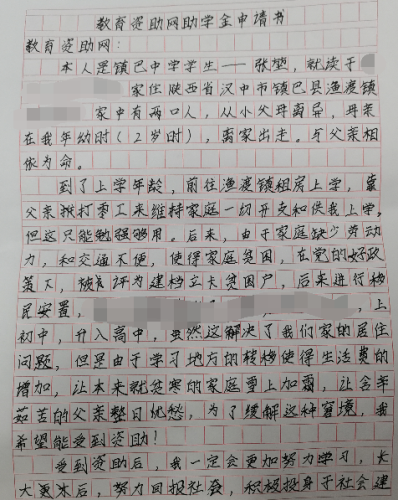 教育资助网助学金申请书
教育资助网：
本人是镇巴中学学生——张堃，就读于
家住陕西省汉中市镇巴县渔渡镇
家中有两口人，从小父母离异，母亲
在我年幼时（2岁时），离家出走。与父亲相
依为命。
到了上学年龄，前往渔渡镇租房上学，靠
父亲拼打零工来维持家庭一切开支和供我上学，
但这只能勉强够用。后来，由于家庭缺少劳动
力，和交通不便，使得家庭贫困，在党的好政
策下，被评为建档立卡贫困户，后来进行移
民安置，上
初中，升入高中，虽然这解决了我们家的居住
问题，但是由于学习地方的转移使得生活费的
增加，让本来就贫寒的家庭雪上加霜，让含辛
茹苦的父亲整日忧愁，为了缓解这种窘境，我
希望能受到资助！
受到资助后，我一定会更加努力学习，长
大更本后，努力回报社会，积极投身于社会建